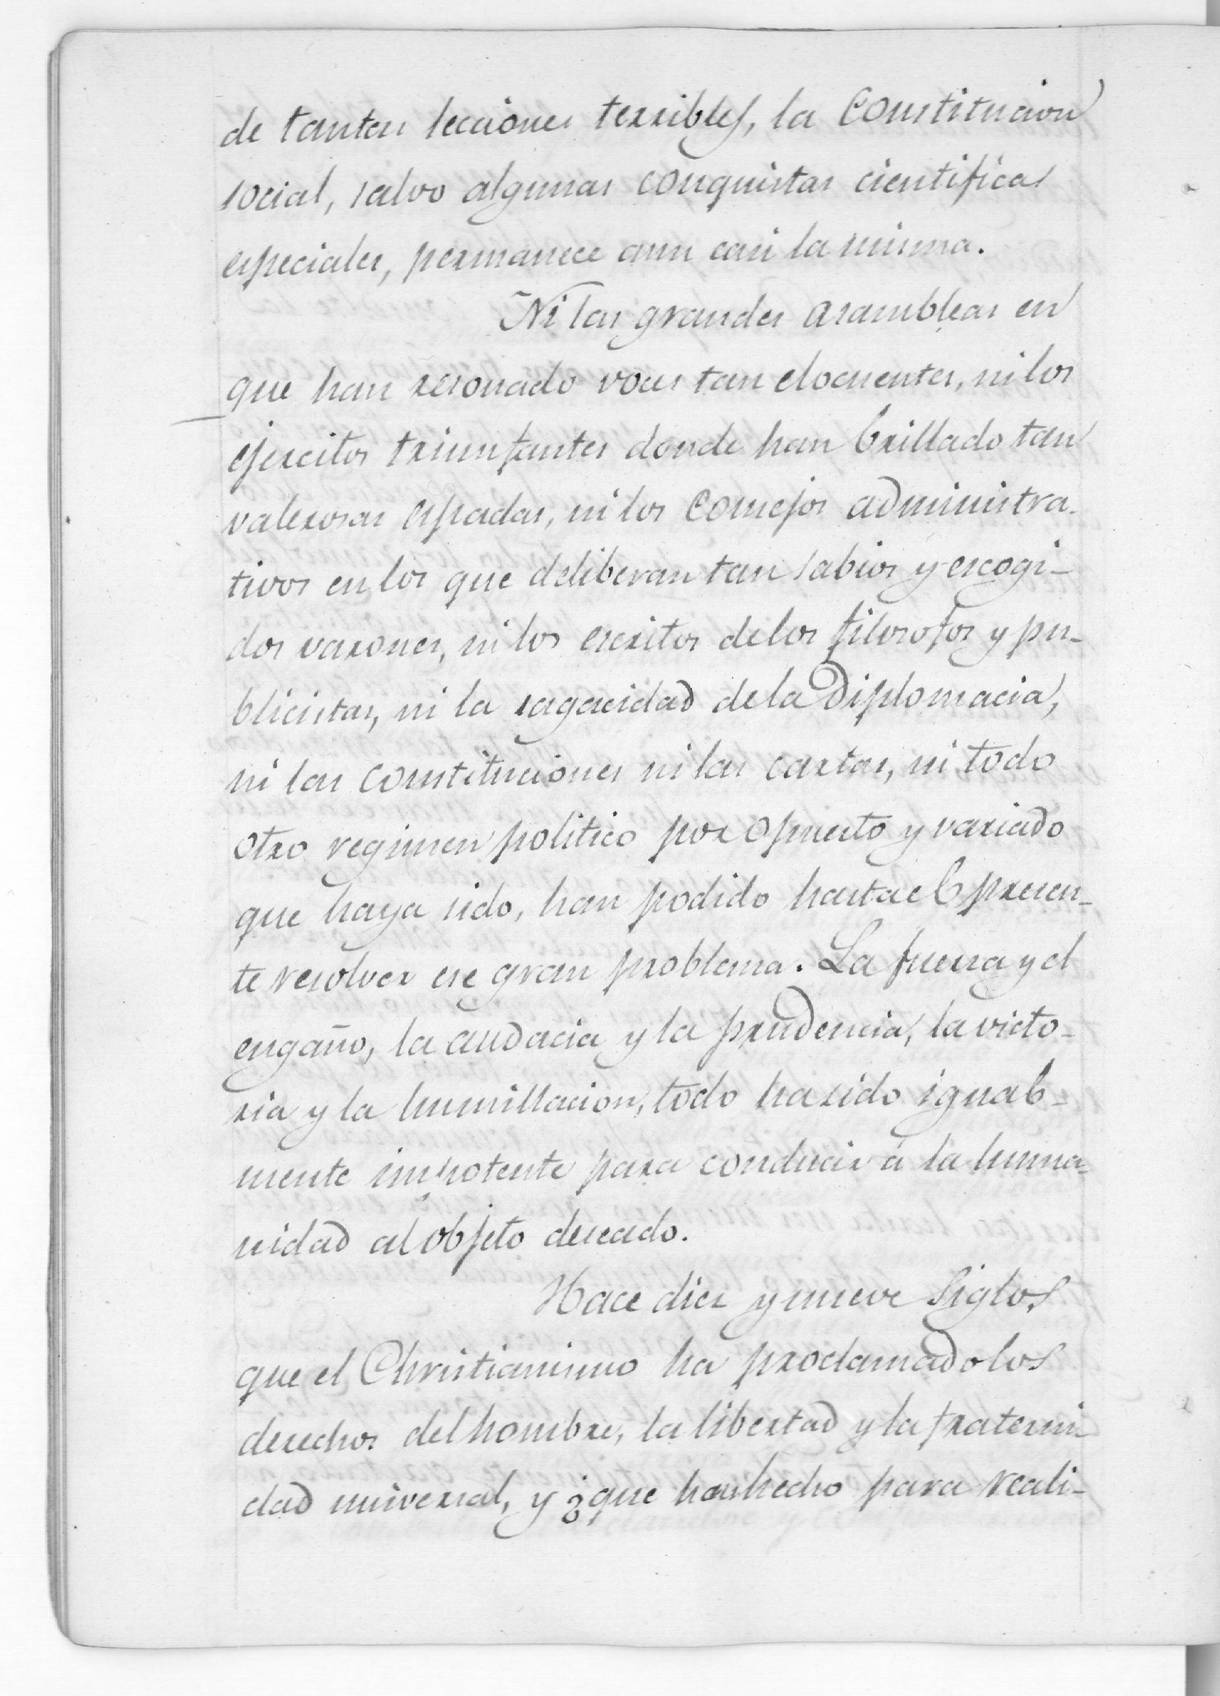 de tantas lecciones terribles, la Constitucion
social, salvo algunas conquistas cientificas
especiales, permanece aun casi la misma.
Ni las grandes asambleas en
que han resonado voces tan elocuentes, ni los
ejercitos triunfantes donde han brillado tan
valerosas espadas, ni los Consejos administra-
tivos en los que deliberan tan sabios y escogi-
dos varones, ni los escritos de los filosofos y pu-
blicistas, ni la sagacidad de la Diplomacia,
ni las Constituciones ni las cartas, ni todo
otro regimen politico por opuesto y variado
que haya sido, han podido hasta el presen-
te resolver ese gran problema. La fuerza y el
engaño, la audacia y la prudencia, la victo-
ria y la humillacion, todo ha sido igual-
mente impotente para conducir á la huma-
nidad al objeto deseado.
Hace diez y nueve Siglos
que el Christianismo ha proclamado los
derechos del hombre, la libertad y la fraterni
dad universal, y ¿que han hecho para reali-